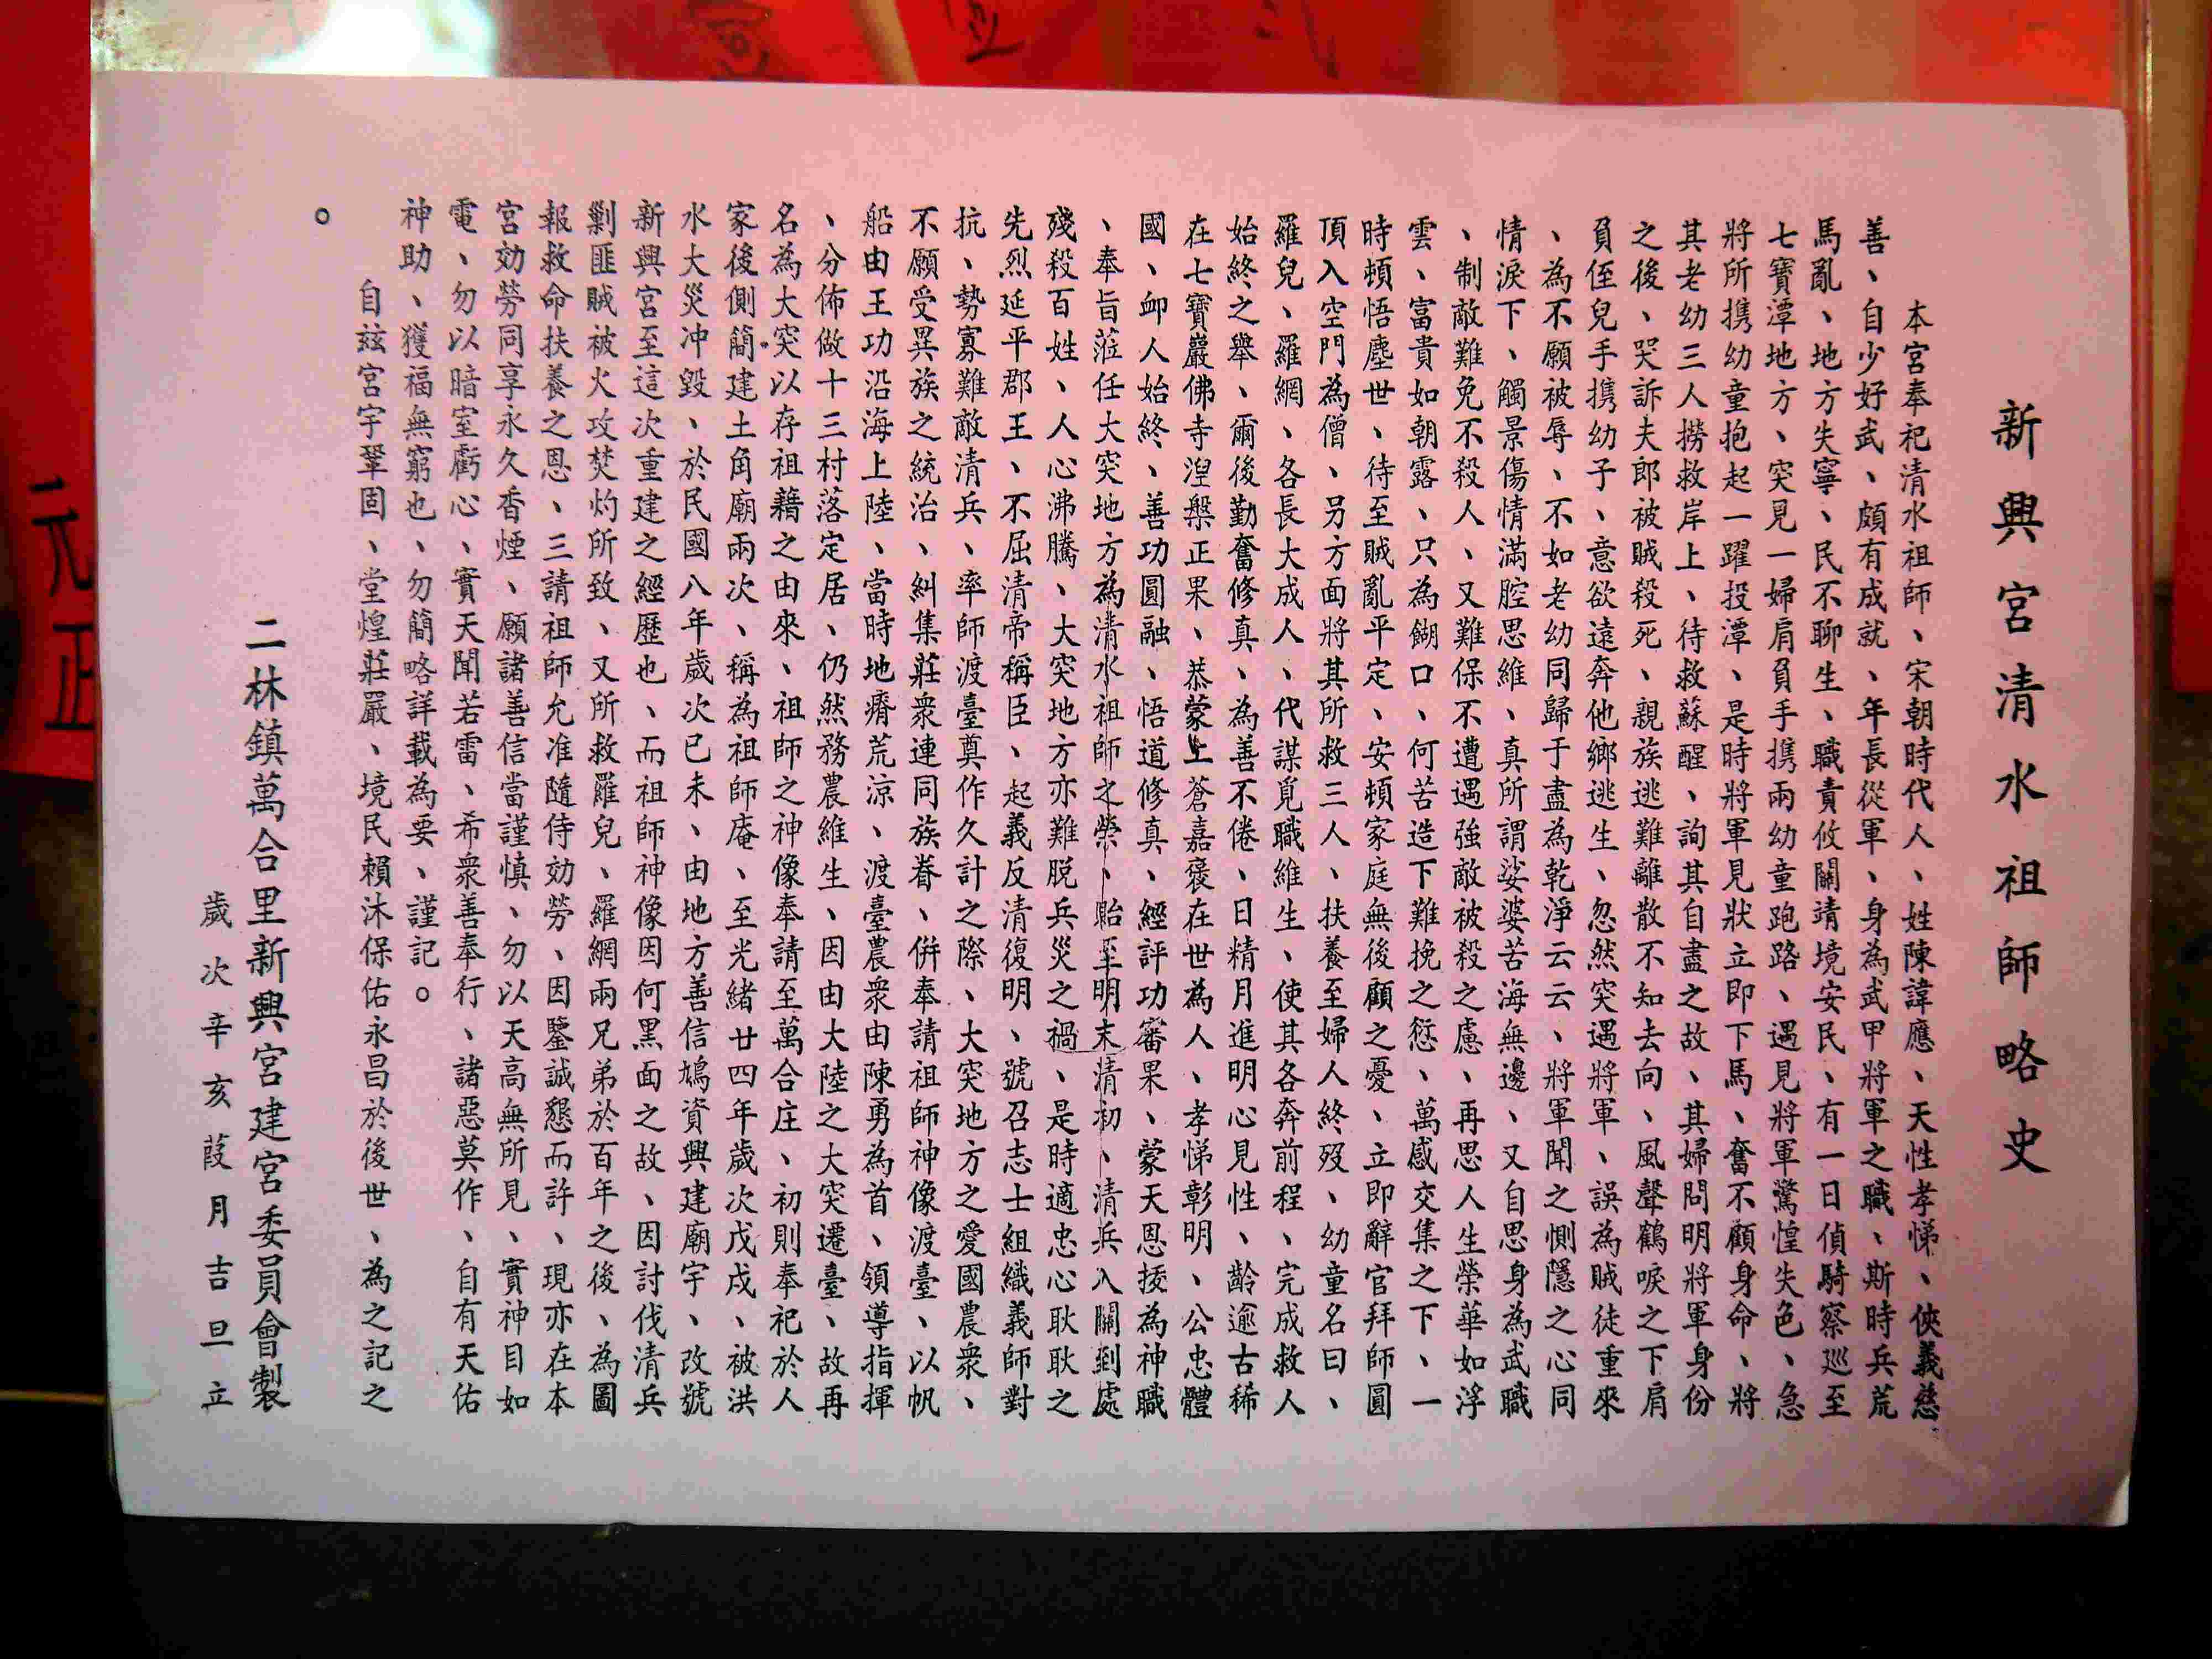 新興宮清水祖師略史
本宮奉祀清水祖師、宋朝時代人、姓陳諱應、天性孝悌、俠義慈
善、自少好武、頗有成就、年長從軍、身為武甲將軍之職、斯時兵荒
馬亂、地方失寧、民不聊生、職責攸關靖境安民、有一日偵騎察巡至
七寶潭地方、突見一婦肩負手携兩幼童跑路、遇見將軍驚惶失色、急
將所携幼童抱起一躍投潭、是時將軍見狀立即下馬、奮不顧身命、將
其老幼三人撈救岸上、待救蘇醒、詢其自盡之故、其婦問明將軍身份
之後、哭訴夫郎被賊殺死、親族逃難離散不知去向、風聲鶴唳之下肩
負侄兒手携幼子、意欲遠奔他鄉逃生、忽然突遇將軍、誤為賊徒重來
、為不願被辱、不如老幼同歸于盡為乾淨云云、將軍聞之惻隱之心同
情淚下、觸景傷情情滿腔思維、真所謂娑婆苦海無邊、又自思身為武職
、制敵難免不殺人、又難保不遭遇強敵被殺之慮、再思人生榮華如浮
雲、富貴如朝露、只為餬口、何苦造下難挽之愆、萬感交集之下、一
時頓悟塵世、待至賊亂平定、安頓家庭無後顧之憂、立即辭官拜師圓
頂入空門為僧、另方面將其所救三人、扶養至婦人終歿、幼童名曰、
羅兒、羅網、各長大成人、代謀覓職維生、使其各奔前程、完成救人
始終之舉、爾後勤奮修真、為善不倦、日精月進明心見性、齡逾古稀
在七寶巖佛寺湼槃正果、恭蒙上蒼嘉褒在世為人、孝悌彰明、公忠體
國、卹人始終、善功圓融、悟道修真、經評功審果、蒙天恩授為神職
、奉旨蒞任大突地方為清水祖師之榮、貽至明末清初、清兵入關到處
殘殺百姓、人心沸騰、大突地方亦難脫兵災之禍、是時適忠心耿耿之
先烈延平郡王、不屈清帝稱臣、起義反清復明、號召志士組織義師對
抗、勢寡難敵清兵、率師渡臺奠作久計之際、大突地方之愛國農衆、
不願受異族之統治、糾集莊衆連同族眷、併奉請祖師神像渡臺、以帆
船由王功沿海上陸、當時地瘠荒涼、渡臺農衆由陳勇為首、領導指揮
、分佈做十三村落定居、仍然務農維生、因由大陸之大突遷臺、故再
名為大突以存祖藉之由來、祖師之神像奉請至萬合庄、初則奉祀於人
家後側簡建土角廟兩次、稱為祖師庵、至光緒廿四年歲次戊戌、被洪
水大災冲毀、於民國八年歲次已未、由地方善信鳩資興建廟宇、改號
新興宮至這次重建之經歷也、而祖師神像因何黑面之故、因討伐清兵
剿匪賊被火攻焚灼所致、又所救羅兒、羅網兩兄弟於百年之後、為圖
報救命扶養之恩、三請祖師允准隨侍効勞、因鑒誠懇而許、現亦在本
宮効勞同享永久香煙、願諸善信當謹慎、勿以天高無所見、實神目如
電、勿以暗室虧心、實天聞若雷、希衆善奉行、諸惡莫作、自有天佑
神助、獲福無窮也、勿簡略詳載為要、謹記。
自茲宮宇鞏固、堂煌莊嚴、境民賴沐保佑永昌於後世、為之記之
。
二林鎮萬合里新興宮建宮委員會製
歲次辛亥葭月吉旦立
元
正